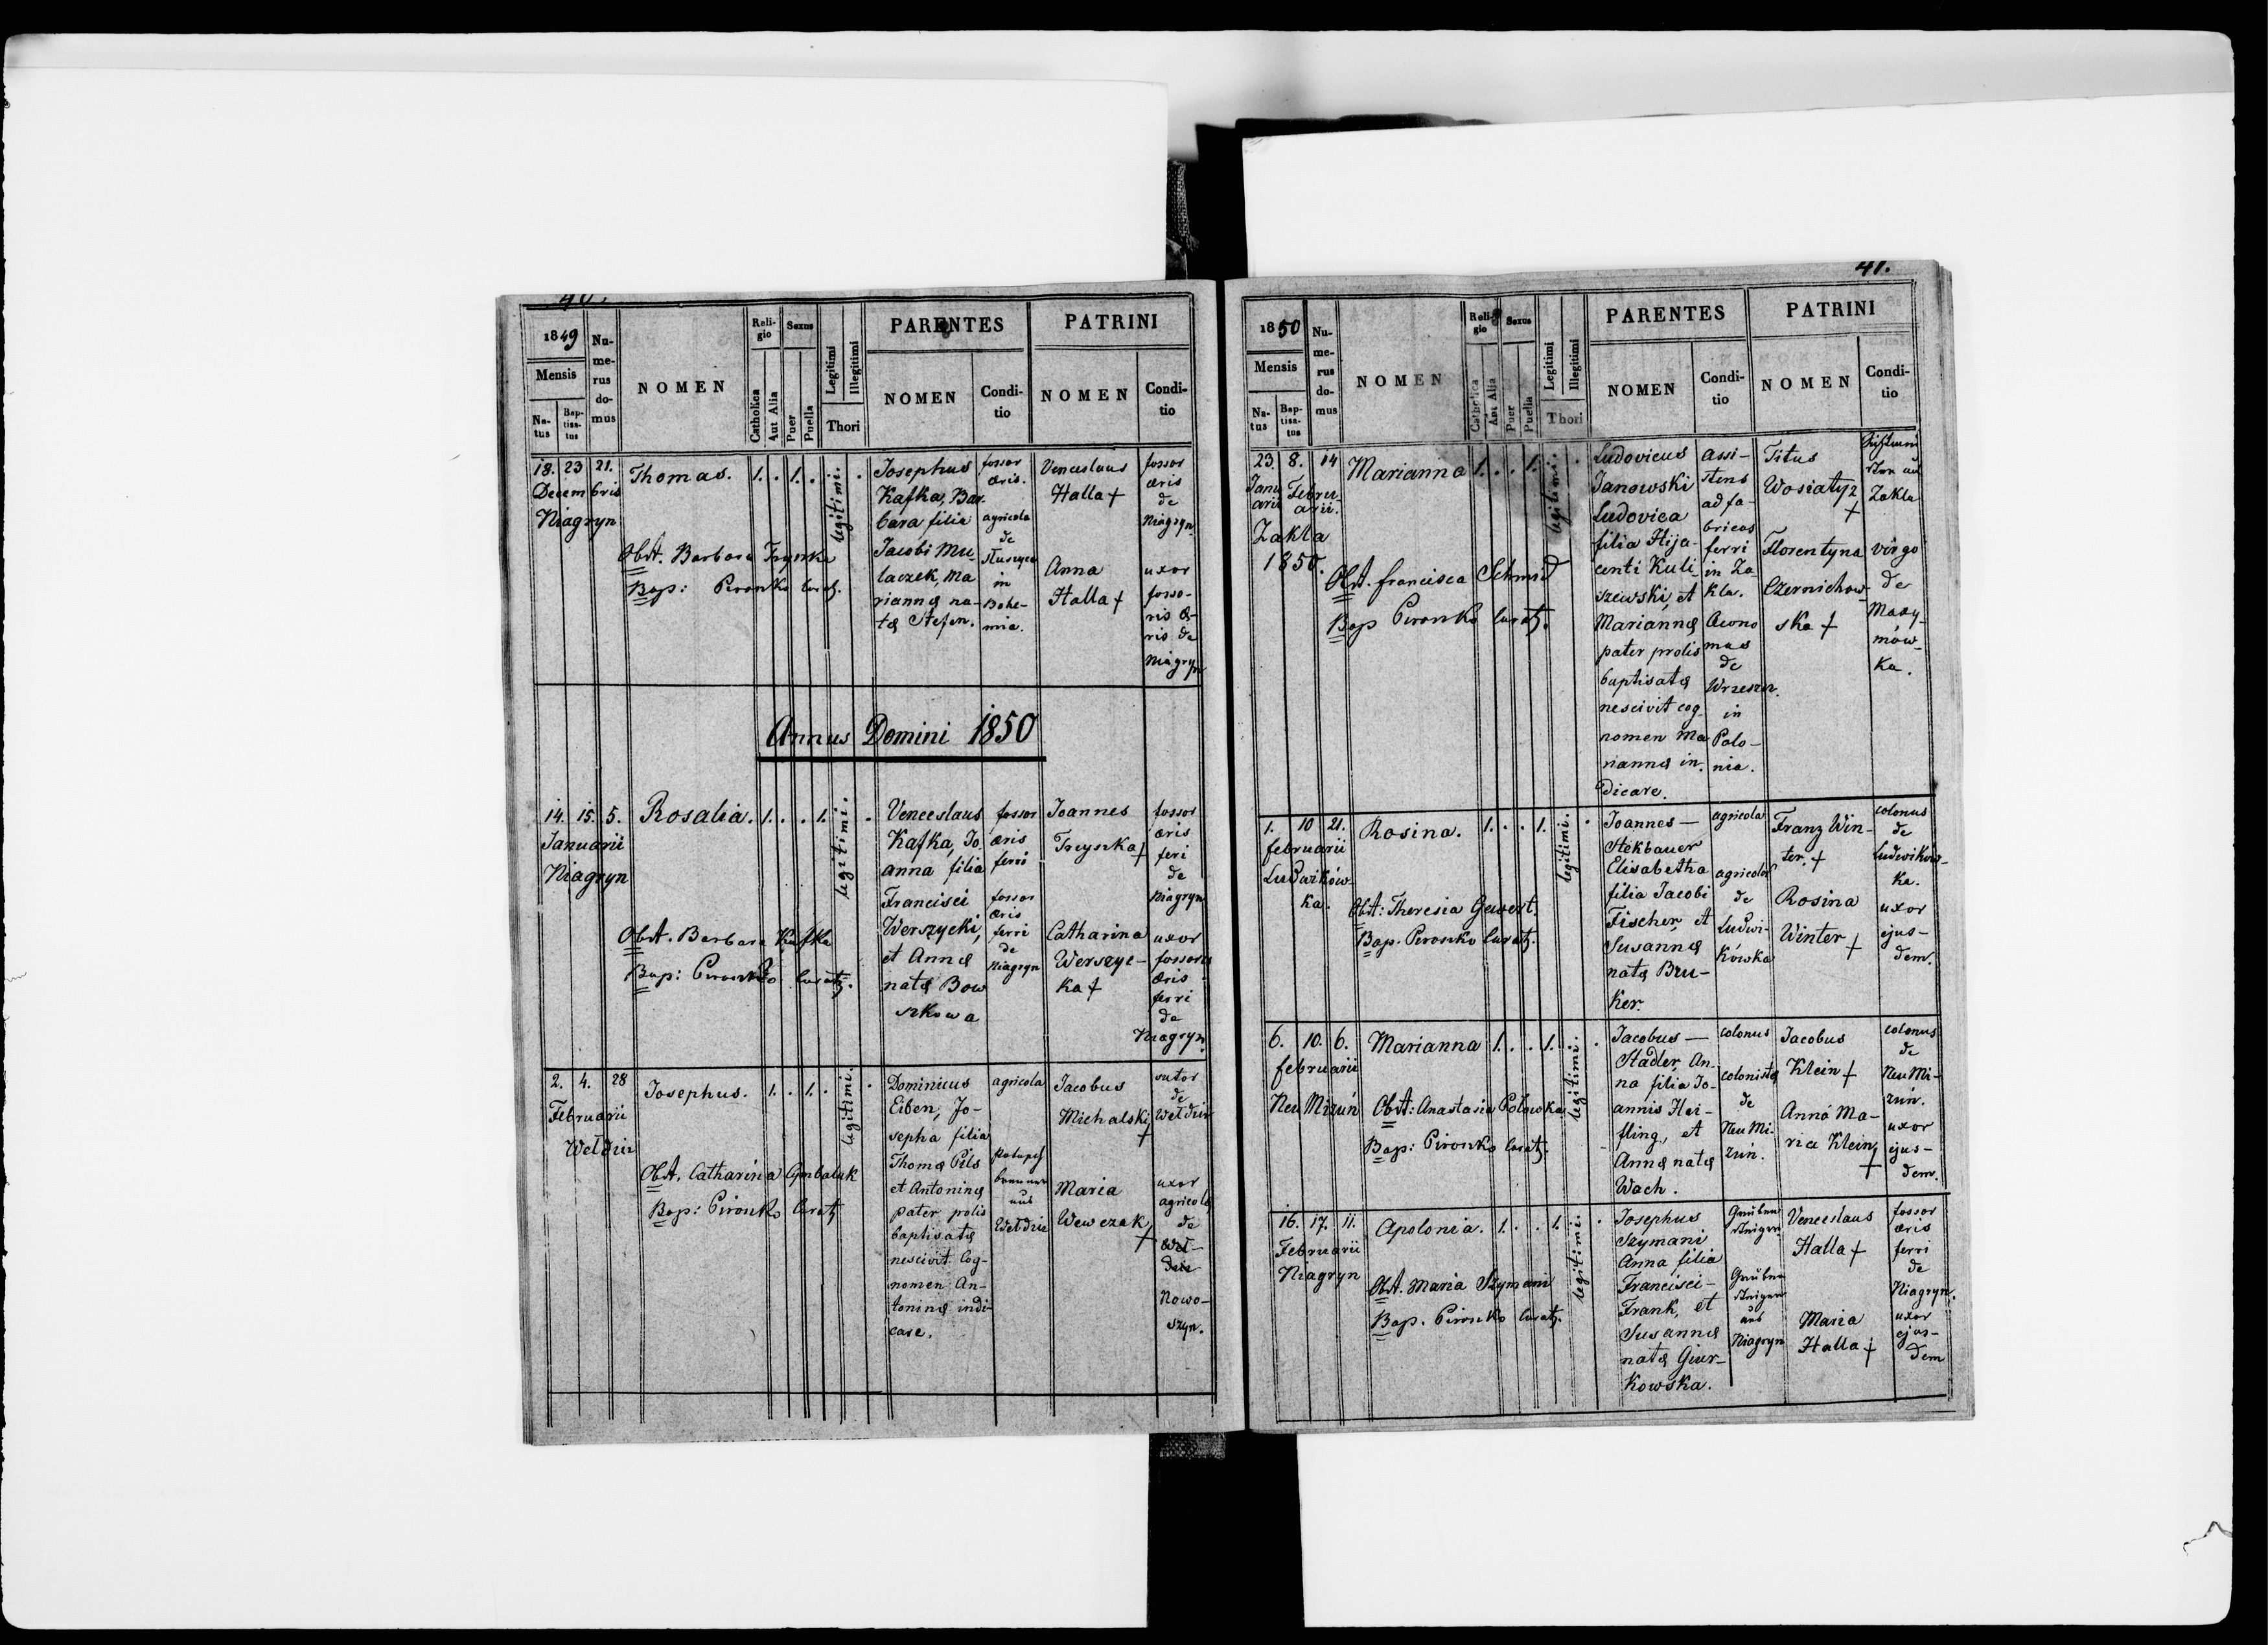 40.
1849
Mensis
Na-
tus
Bap-
tisa-
tus
Nu-
me-
rus
do-
mus
NOMEN
Reli-
gio
Catholica
Aut Alia
Sexus
Puer
Puella
Legitimi
Illegitimi
Thori
PARENTES
NOMEN
Condi-
tio
PATRINI
NOMEN
Condi-
tio
18. 23 21.
Decembris
Niagryn
Thomas.
1. . 1. .
legitimi.
Obst. Barbara
Bap: Pironko Curatg.
Josephus
Kafka, Bar
bara filia
Jacobi Mu-
laczek, Ma
riannæ na-
tæ Stefen.
fossor
æris.
agricola
de
in
Bohe-
mia.
Venceslaus
Halla +
Anna
Halla +
fossor
æris
de
Niagryn.
uxor
fosso-
ris æ-
ris de
Niagryn
Annus Domini 1850
14. 15. 5.
Januarii
Niagryn
Rosalia.
1. . . 1.
legitimi.
Obst. Barbara Kafka
Bap: Pironko Curatg.
Venceslaus
Kafka, Jo
anna filia
Francisci
Werszycki,
et Annæ
natæ Bow
szkowa
fossor
æris
ferri
fossor
æris
ferri
de
Niagryn
Joannes
Trzyszka +
Catharina
Werszyc-
ka +
fossor
æris
feri
de
Niagryn
uxor
fossoris
æris
ferri
de
Niagryn.
2. 4. 28
Februarii
Wełdzir
Josephus.
1. . 1. .
legitimi.
Obst. Catharina Gonbaluk
Bap: Pironko Curatg
Dominicus
Eiben, Jo-
sepha filia
Thomæ Pils
et Antoninæ
pater prolis
baptisatæ
nescivit Cog-
nomen An-
toninæ indi-
care.
agricola
brenner
aus
Wełdzir
Jacobus
Michalski
+
Maria
Wewczak
+
sutor
de
Wełdzir
uxor
agricolæ
de
Weł-
dzir
Nowo-
szyn.
41.
1850
Mensis
Na-
tus
Bap-
tisa-
tus
Nu-
me-
rus
do-
mus
NOMEN
Reli-
gio
Catholica
Aut Alia
Sexus
Puer
Puella
Legitimi
Illegitimi
Thori
PARENTES
NOMEN
Condi-
tio
PATRINI
NOMEN
Condi-
tio
23. 8. 14
Janu
arii
Febru-
arii.
Zakla
1850.
Marianna
1. . . 1.
legitimi.
Obst. Francisca Schmid
Bap Pironko Curatg.
Ludovicus
Janowski
Ludovica
filia Hija-
centi Kuli-
szewski, et
Mariannæ
pater prolis
baptisatæ
nescivit cog-
nomen Ma
riannæ in-
dicare.
assi-
stens
ad fa-
bricas
ferri
in Za-
kla.
Œcono
mus
de
Wrzeszn.
in
Polo-
nia.
Titus
Wosiatyz
+
Florentyna
Czernichow-
ska +
Zakla
virgo
de
Maxy-
mów-
ka.
1. 10 21.
februarii
Ludwików-
ka.
Rosina.
1. . . 1.
legitimi.
Obst: Theresia Gewert.
Bap. Pironko Curatg.
Joannes —
Stekbauer
Elisabetha
filia Jacobi
Fischer, et
Susannæ
natæ Bru-
ker.
agricola
agricolæ
de
Ludwi-
kówka
Franz Win-
ter. +
Rosina
Winter +
colonus
de
Ludwików-
ka.
uxor
ejus-
dem.
6. 10. 6.
februarii
Neu Mizuń
Marianna
1. . . 1.
legitimi.
Obst: Anastasia Polowka
Bap: Pironko Curatg.
Jacobus —
Stadler, An-
na filia Jo-
annis Hei-
fling, et
Annæ natæ
Wach.
colonus
colonistæ
de
Neu Mi-
zuń.
Jacobus
Klein +
Anna Ma-
ria Klein
+
colonus
de
Neu Mi-
zuń.
uxor
ejus-
dem.
16. 17. 11.
Februarii
Niagryn
Apolonia.
1. . . 1.
legitimi.
Obst. Maria Szymani
Bap. Pironko Curatg.
Josephus
Szymani
Anna filia
Francisci —
Frank, et
Susannæ
natæ Giur-
kowska.
aus
Niagryn
Venceslaus
Halla +
Maria
Halla +
fossor
æris
ferri
de
Niagryn.
uxor
ejus-
dem